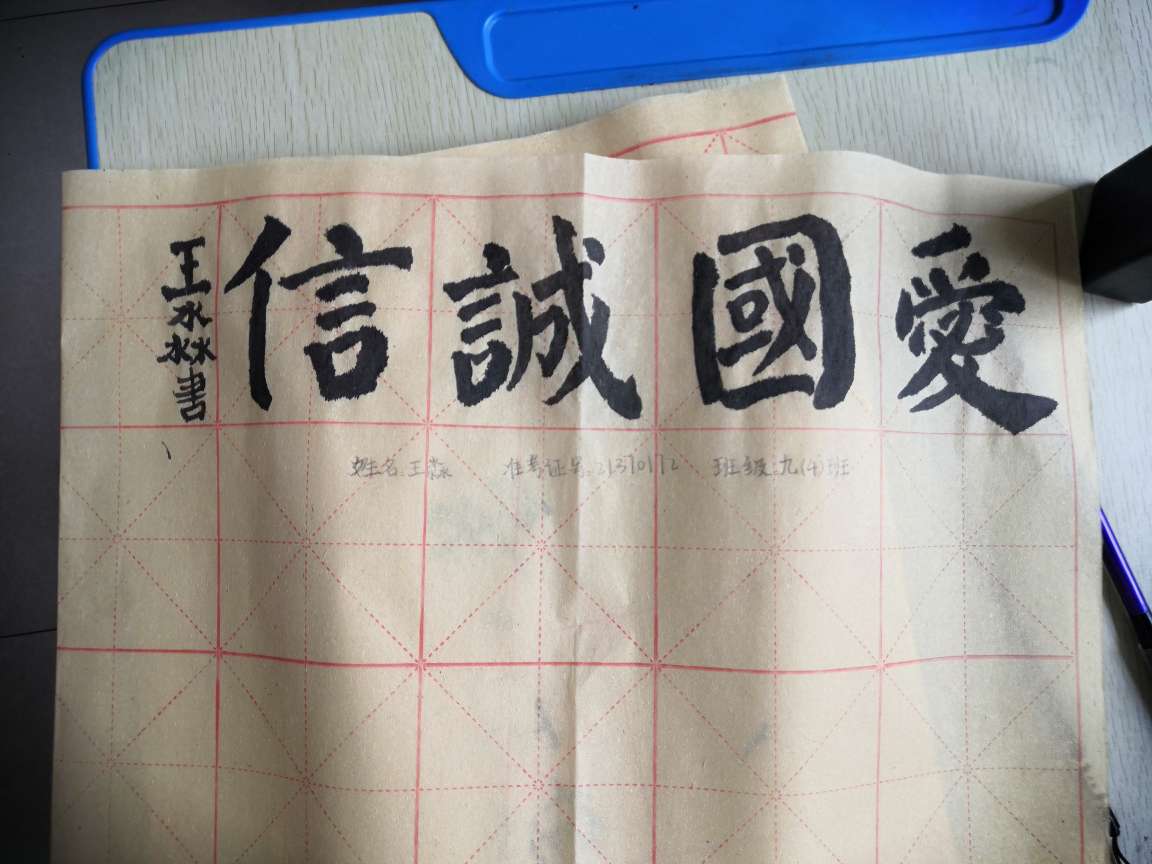 愛國誠信
王淼書
姓名:王淼 准考证号:21370172 班级:九(4)班